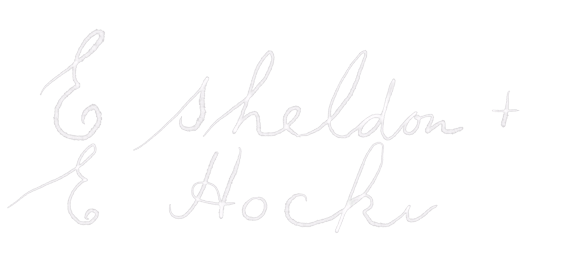 E sheldon +
E Hocki